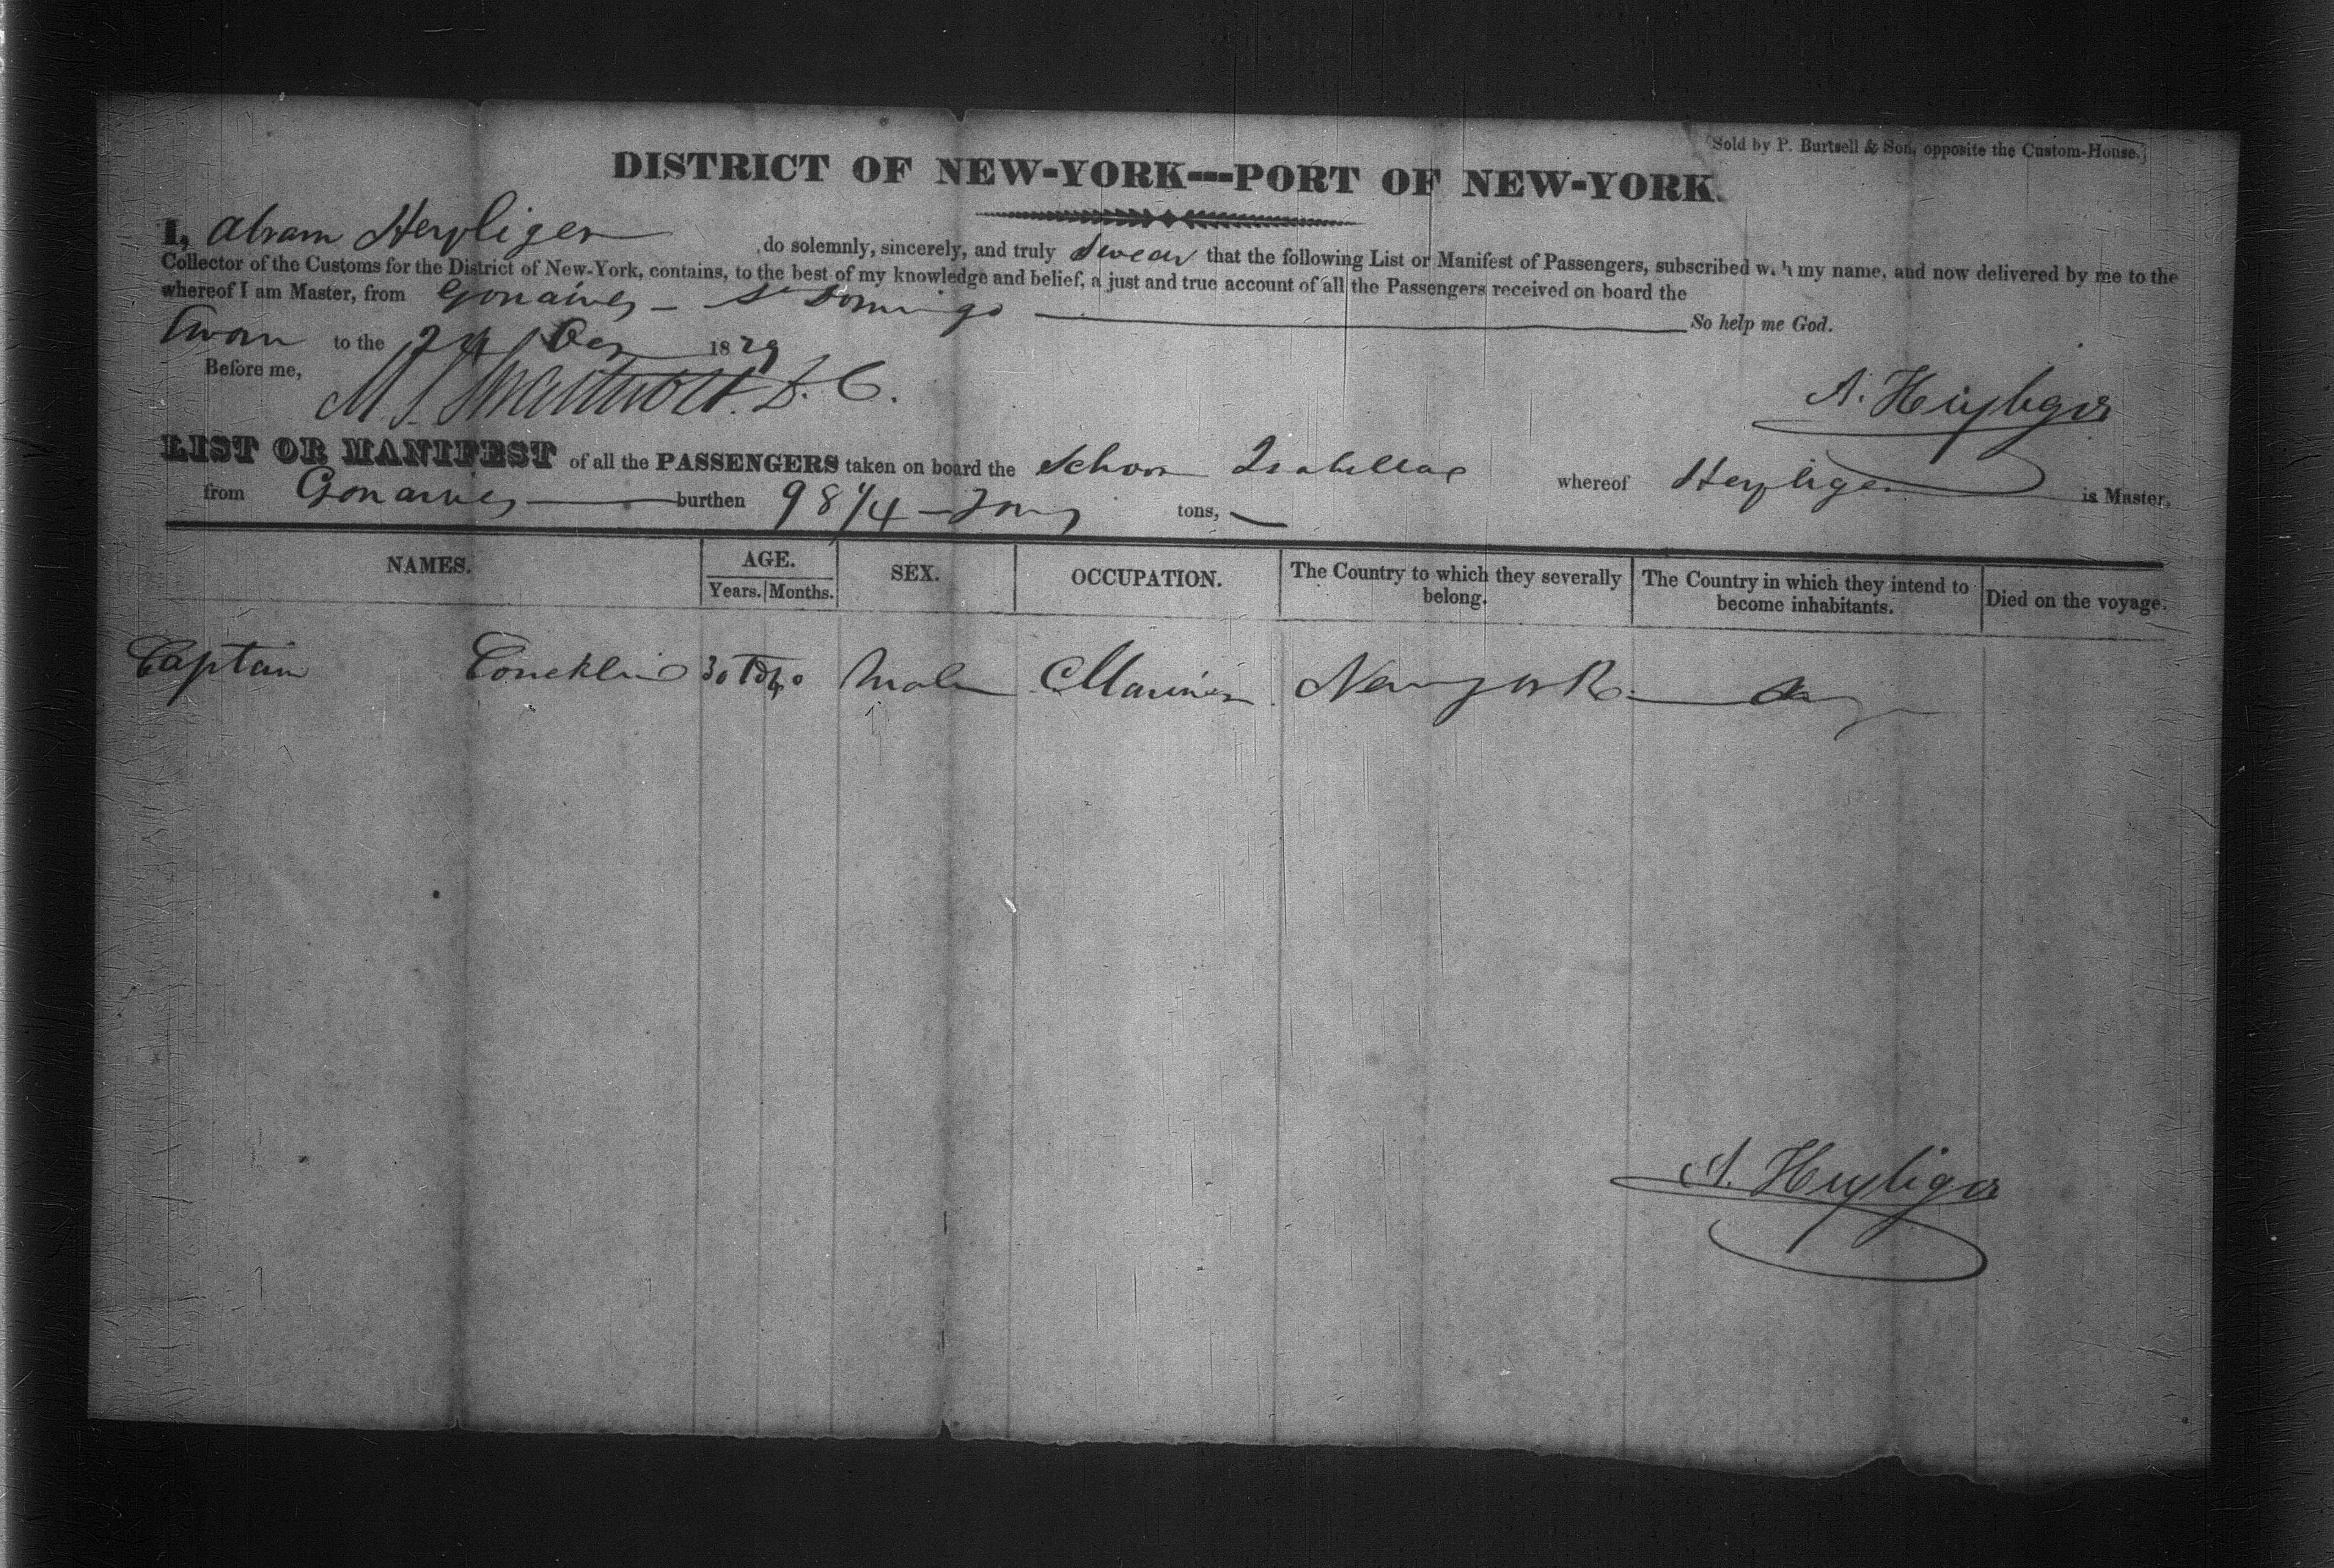 [Sold by P. Burtsell & Son, opposite the Custom-House.]
DISTRICT OF NEW-YORK---PORT OF NEW-YORK.
I, Abram Heyliger do solemnly, sincerely, and truly Swear that the following List or Manifest of Passengers, subscribed with my name, and now delivered by me to the
Collector of the Customs for the District of New-York, contains, to the best of my knowledge and belief, a just and true account of all the Passengers received on board the
whereof I am Master, from Gonaives - St Domingo So help me God.
Sworn to the 24 1829
Before me, D. C.
A. Heyliger
LIST OR MANIFEST of all the PASSENGERS taken on board the Schoor Isabella whereof Heyliger is Master,
from Gonaives burthen 98 1/4 - Tons tons,
NAMES. AGE. SEX. OCCUPATION. The Country to which they severally belong. The Country in which they intend to become inhabitants. Died on the voyage.
Years. Months.
Captain Roncklin 30 To 40 Male Mariner New york
A. Heyliger